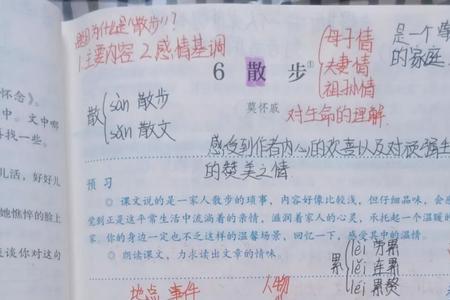 为什么是"散步"?
1.主要内容 2.感情基调
母子情
夫妻情
祖孙情
是一个
的家庭
6 散 步①
莫怀戚
散
sàn 散步
sǎn 散文
对生命的理解
感受到作者内心的欢喜以及对顽强生
的赞美之情
怀念》。
中。文中哪
寻找一些。
儿活,好好儿
她憔悴的脸上
谈你对这句
预 习
◎ 课文说的是一家人散步的琐事,内容好像比较浅,但仔细品味,会
觉到正是这平常生活中流淌着的亲情,滋润着家人的心灵,承托起一个温暖的
家。你的身边一定也不乏这样的温馨场景,回忆一下,感受其中的温情。
◎ 朗读课文,力求读出文章的情味。
累
lèi 劳累
lěi 连累
léi 累赘
地点 事件
人物